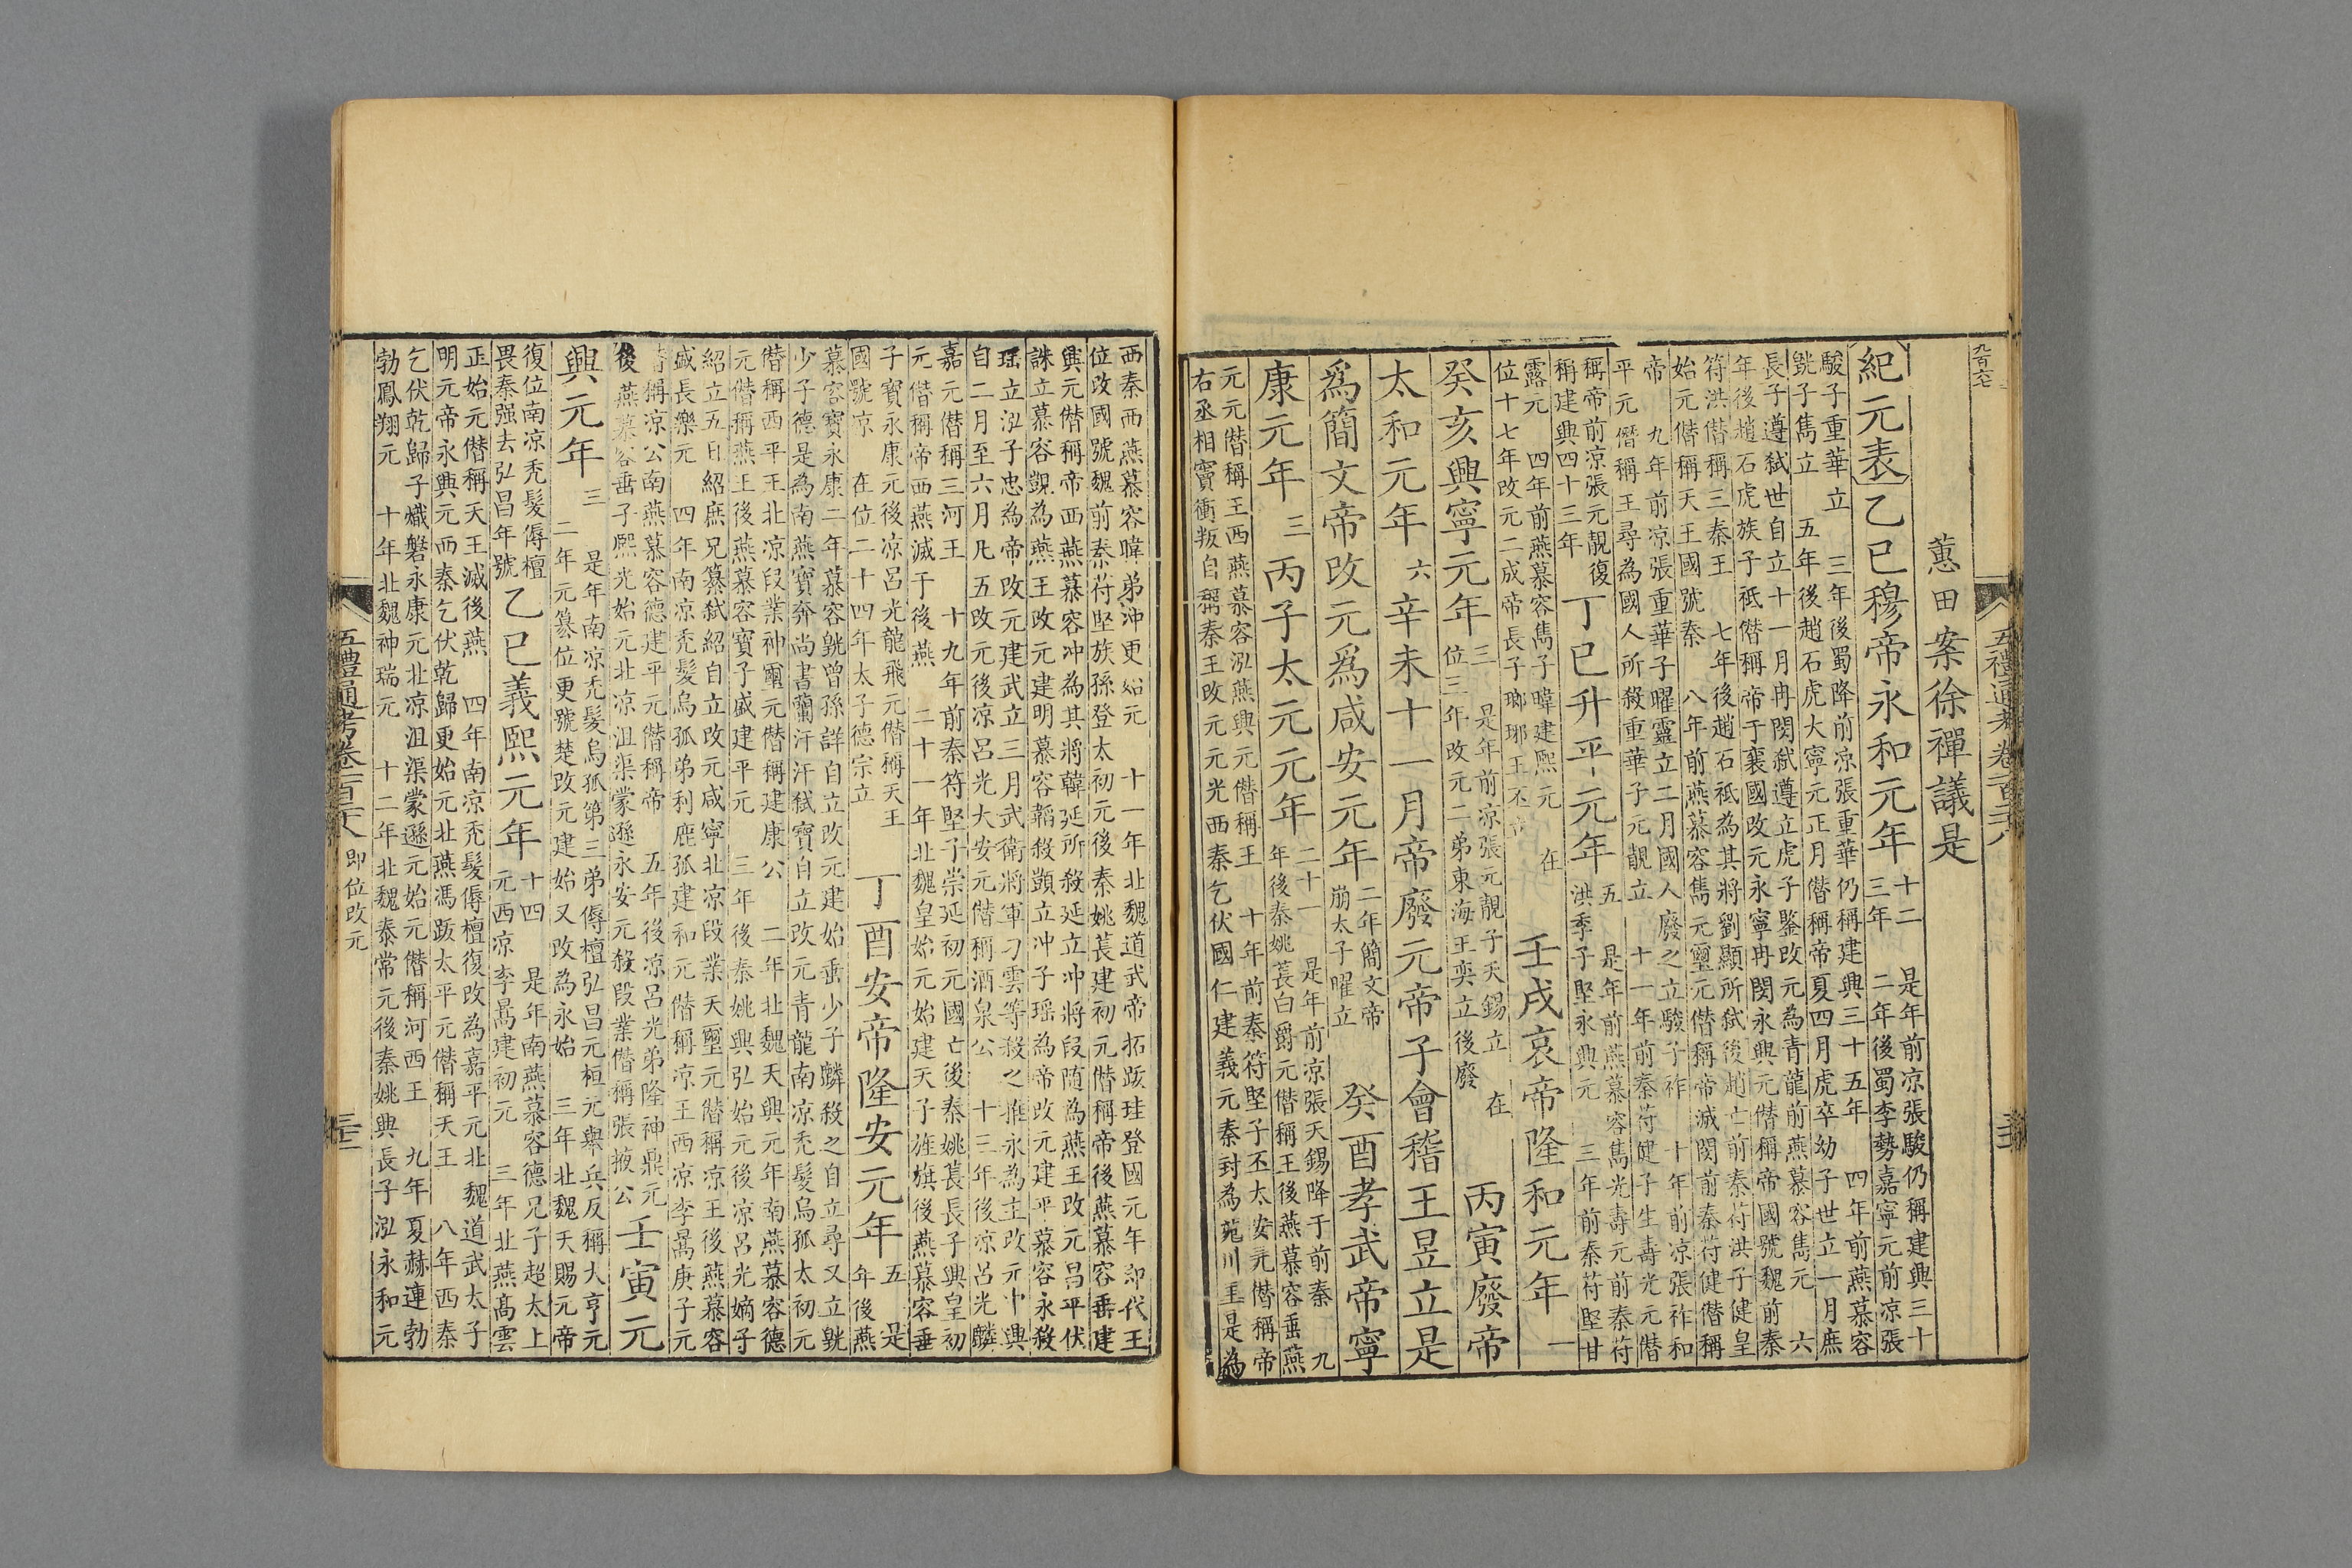 九百六七
五禮通考卷一百三八
蕙田案徐禪議是
紀元表乙巳穆帝永和元年十二三年 是年前凉張駿仍稱建興三十二年後蜀李勢嘉寧元前凉張
駿子重華立 三年後蜀降前凉張重華仍稱建興三十五年 四年前燕慕容
皝子雋立 五年後趙石虎大寧元正月僭稱帝夏四月虎卒幼子世立一月庶
長子遵弑世自立十一月冉閔弑遵立虎子鑒改元為青龍前燕慕容雋元 六
年後趙石虎族子祇僭稱帝于襄國改元永寧冉閔永興元僭稱帝國號魏前秦
苻洪僭稱三秦王 七年後趙石祇為其將劉顯所弑後趙亡前秦苻洪子健皇
始元僭稱天王國號秦 八年前燕慕容雋元璽元僭稱帝滅閔前秦苻健僭稱
帝 九年前凉張重華子曜靈立二月國人廢之立駿子祚 十年前凉張祚和
平元僭稱王尋為國人所殺重華子元靚立 十一年前秦苻健子生壽光元僭
稱帝前凉張元靚復稱建興四十三年 丁巳升平元年五 是年前燕慕容雋光壽元前秦苻洪季子堅永興元 三年前秦苻堅甘
露元 四年前燕慕容雋子暐建熙元 在位十七年改元二成帝長子瑯琊王丕帝 壬戌哀帝隆和元年一
癸亥興寧元年三 是年前凉張元靚子天錫立 在位三年改元二弟東海王奕立後廢 丙寅廢帝
太和元年六辛未十一月帝廢元帝子會稽王昱立是
為簡文帝改元為咸安元年二年簡文帝崩太子曜立 癸酉孝武帝寧
康元年三丙子太元元年二十一年 是年前凉張天錫降于前秦 九年後秦姚萇白爵元僭稱王後燕慕容垂燕
元元僭稱王西燕慕容泓燕興元僭稱王 十年前秦苻堅子丕太安元僭稱帝
右丞相竇衝叛自稱秦王改元元光西秦乞伏國仁建義元秦封為苑川王是為
西秦西燕慕容暐弟沖更始元 十一年北魏道武帝拓跋珪登國元年卽代王
位改國號魏前秦苻堅族孫登太初元後秦姚萇建初元僭稱帝後燕慕容垂建
興元僭稱帝西燕慕容沖為其將韓延所殺延立沖將段隨為燕王改元昌平伏
誅立慕容覬為燕王改元建明慕容韜殺顗立沖子瑶為帝改元建平慕容永殺
瑶立泓子忠為帝改元建武立三月武衛將軍刁雲等殺之推永為主改元中興
自二月至六月凡五改元後凉呂光大安元僭稱酒泉公 十三年後凉呂光麟
嘉元僭稱三河王 十九年前秦苻堅子崇延初元國亡後秦姚萇長子興皇初
元僭稱帝西燕滅于後燕 二十一年北魏皇始元始建天子旌旗後燕慕容垂
子寶永康元後凉呂光龍飛元僭稱天王國號凉 在位二十四年太子德宗立 丁酉安帝隆安元年五 是年後燕
慕容寶永康二年慕容皝曾孫詳自立改元建始垂少子麟殺之自立尋又立皝
少子德是為南燕寶奔尚書蘭汗汗弑寶自立改元青龍南凉禿髮烏孤太初元
僭稱西平王北凉段業神璽元僭稱建康公 二年北魏天興元年南燕慕容德
元僭稱燕王後燕慕容寶子盛建平元 三年後秦姚興弘始元後凉呂光嫡子
紹立五日紹庶兄纂弑紹自立改元咸寧北凉段業天璽元僭稱凉王後燕慕容
盛長樂元 四年南凉禿髮烏孤弟利鹿孤建和元僭稱凉王西凉李暠庚子元
僭稱凉公南燕慕容德建平元僭稱帝 五年後凉呂光弟隆神鼎元後燕慕容垂子熙光始元北凉沮渠蒙遜永安元殺段業僭稱張掖公 壬寅元
興元年三 是年南凉禿髮烏孤第三弟傉檀弘昌元桓元舉兵反稱大亨元 二年元篡位更號楚改元建始又改為永始 三年北魏天賜元帝
復位南凉禿髮傉檀畏秦强去弘昌年號 乙巳義熙元年十四 是年南燕慕容德兄子超太上元西凉李暠建初元 三年北燕高雲
正始元僭稱天王滅後燕 四年南凉禿髮傉檀復改為嘉平元北魏道武太子
明元帝永興元西秦乞伏乾歸更始元北燕馮跋太平元僭稱天王 八年西秦
乞伏乾歸子熾磐永康元北凉沮渠蒙遜元始元僭稱河西王 九年夏赫連勃
勃鳳翔元 十年北魏神瑞元 十二年北魏泰常元後秦姚興長子泓永和元
五禮通考卷一百三八 卽位改元